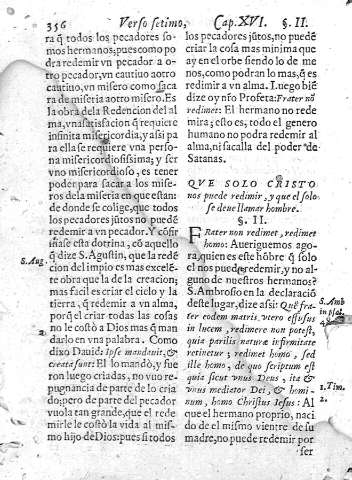 356 Verso setimo, Cap.XVI. §. II.
ra q̃ todos los pecadores so-
mos hermanos; pues como po
dra redemir vn pecador a o-
tro pecador, vn cautiuo aotro
cautiuo, vn misero como saca
ra de miseria aotro misero. Es
la obra dela Redencion del al
ma, vna satisfacion q̃ requiere
infinita misericordia, y assi pa
ra ella se requiere vna perso
na misericordiosissima; y ser
vno misericordioso, es tener
poder para sacar a los miseros
dela miseria en que estan:
de donde se colige, que todos
los pecadores jũtos no puedẽ
redemir a vn pecador. Y cõfir
mase esta dotrina, cõ aquello
q̃ dize S. Agustin, que la redẽ
cion del impio es mas excelẽ-
te obra que la de la creacion;
mas facil es criar el cielo y la
tierra, q̃ redemir a vn alma,
porq̃ el criar todas las cosas
no le costò a Dios mas q̃ man
darlo en vna palabra. Como
dixo Dauid: Ipse mandauit, &
creata sunt: El lo mandò, y fue
ron luego criadas, no vuo re-
pugnancia de parte de lo cria
do; pero de parte del pecador
vuola tan grande, que el rede
mirle le costò la vida al mis-
mo hijo de Dios: pues si todos
S. Aug.
2.
los pecadores jũtos, no puedẽ
criar la cosa mas minima que
ay en el orbe siendo lo de me
nos, como podran lo mas, q̃ es
redimir a vn alma. Luego biẽ
dize oy nr̃o Profeta: Frater nõ
redimet: El hermano no rede
mira; esto es, todo el genero
humano no podra redemir al
alma, ni sacalla del poder de
Satanas.
QVE SOLO CRISTO
nos puede redimir, y que el solo
se deue llamar hombre.
§. II.
Frater non redimet, redimet
homo: Aueriguemos ago-
ra, quien es este hõbre q̃ solo
el nos puede redemir, y no al-
guno de nuestros hermanos?
S. Ambrosio en la declaraciõ
deste lugar, dize assi: Quẽ fra-
ter eodem matris vtero effusus
in lucem, redimere non potest,
quia parilis naturæ infirmitate
retinetur; redimet homo, sed
ille homo, de quo scriptum est
quia sicut vnus Deus, ita &
vnus mediator Dei, & homi-
num, homo Christus Iesus: Al
que el hermano proprio, naci-
do de el mismo vientre de su
madre, no puede redemir por
S. Amb
in psal.
1. Tim.
2.
ser